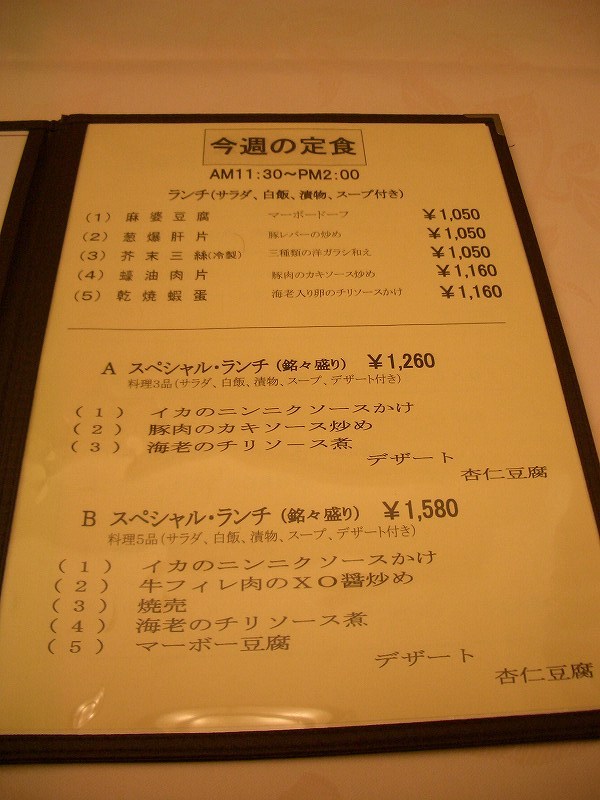 今週の定食
AM11:30～PM2:00
ランチ(サラダ、白飯、漬物、スープ付き)
(1) 麻婆豆腐 マーボードーフ ￥1,050
(2) 葱爆肝片 豚レバーの炒め ￥1,050
(3) 芥末三絲(冷製) 三種類の洋ガラシ和え ￥1,050
(4) 蠔油肉片 豚肉のカキソース炒め ￥1,160
(5) 乾焼蝦蛋 海老入り卵のチリソースかけ ￥1,160
A スペシャル・ランチ (銘々盛り) ￥1,260
料理3品(サラダ、白飯、漬物、スープ、デザート付き)
(1) イカのニンニクソースかけ
(2) 豚肉のカキソース炒め
(3) 海老のチリソース煮
デザート
杏仁豆腐
B スペシャル・ランチ (銘々盛り) ￥1,580
料理5品(サラダ、白飯、漬物、スープ、デザート付き)
(1) イカのニンニクソースかけ
(2) 牛フィレ肉のXO醤炒め
(3) 焼売
(4) 海老のチリソース煮
(5) マーボー豆腐
デザート
杏仁豆腐